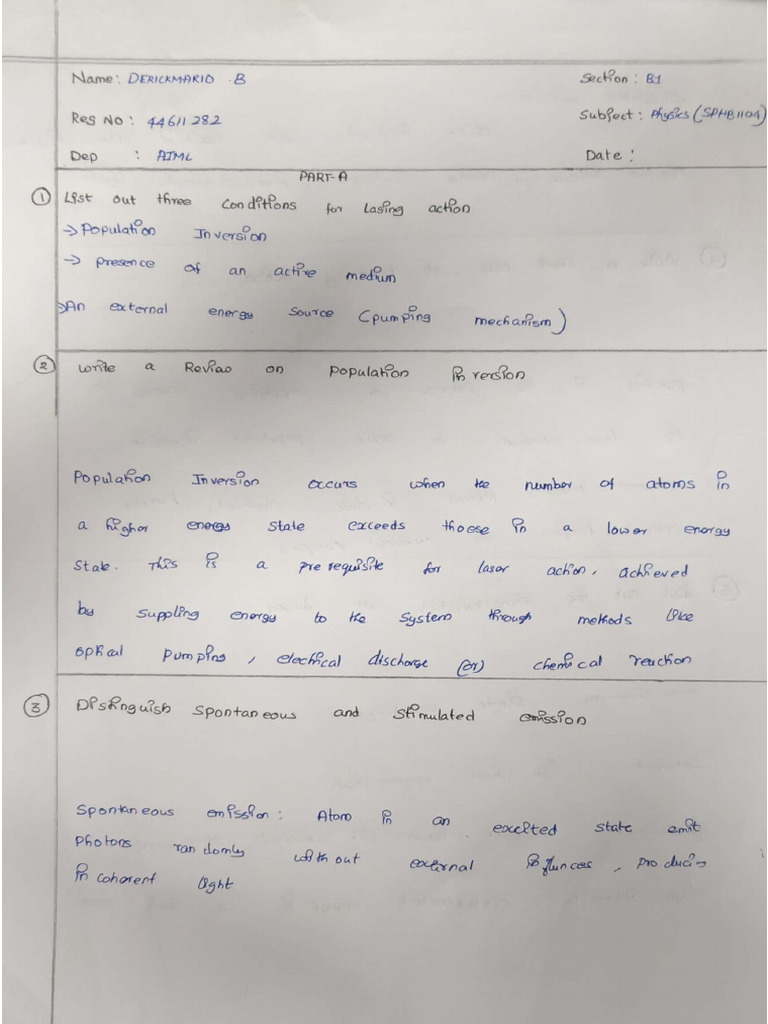 Name: DERICKMARIO .B Section: B1
Reg No: 44611282 Subject: Physics (SPHB1104)
Dep : AIML Date:
PART-A
1 List out three Conditions for Lasing action
→ Population Inversion
→ presence of an active medium
→ An external energy Source (pumping mechanism)
2 Write a Reviao on Population Inversion
Population Inversion occurs when the number of atoms in
a higher energy state exceeds thoese in a lower energy
State. This is a prerequisite for lasor action, achieved
by Suppling energy to the System through methods like
optical pumping, electrical discharge (or) chemical reaction
3 Distinguish Spontaneous and Stimulated emission
Spontaneous emission: Atom in an excited state emit
Photons randomly without external influnces, producing
incoherent light